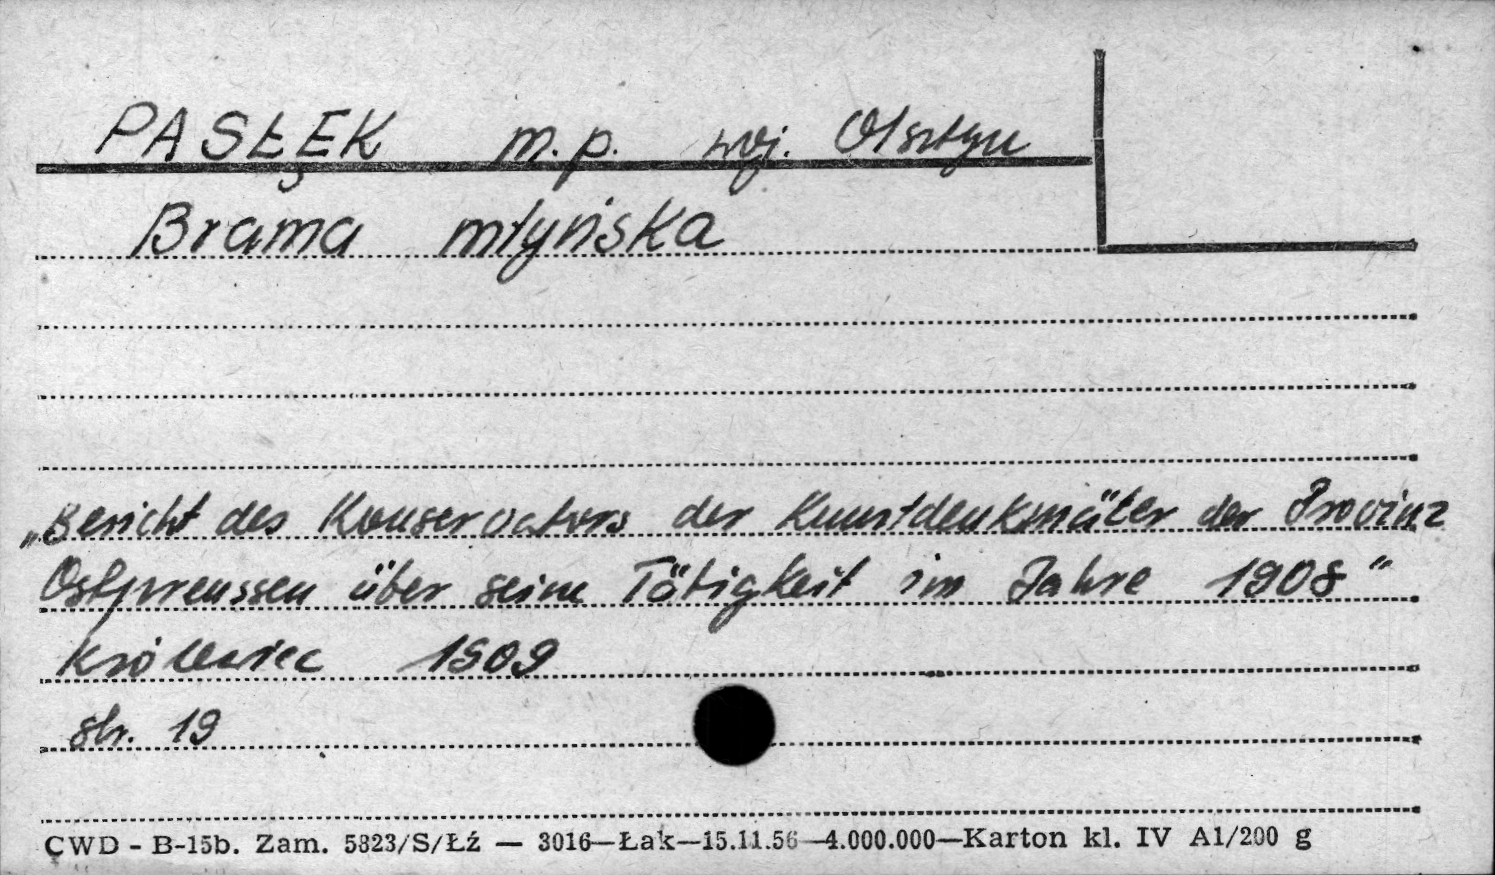 PASŁĘK m.p. woj. Olsztyn
Brama młyńska
„Bericht des Konservators der Kunstdenkmäler der Provinz
Ostpreussen über seine Tätigkeit im Jahre 1908"
Królewiec 1909
str. 19
CWD - B-15b. Zam. 5823/S/Łź — 3016—Łak—15.11.56—4.000.000—Karton kl. IV A1/200 g